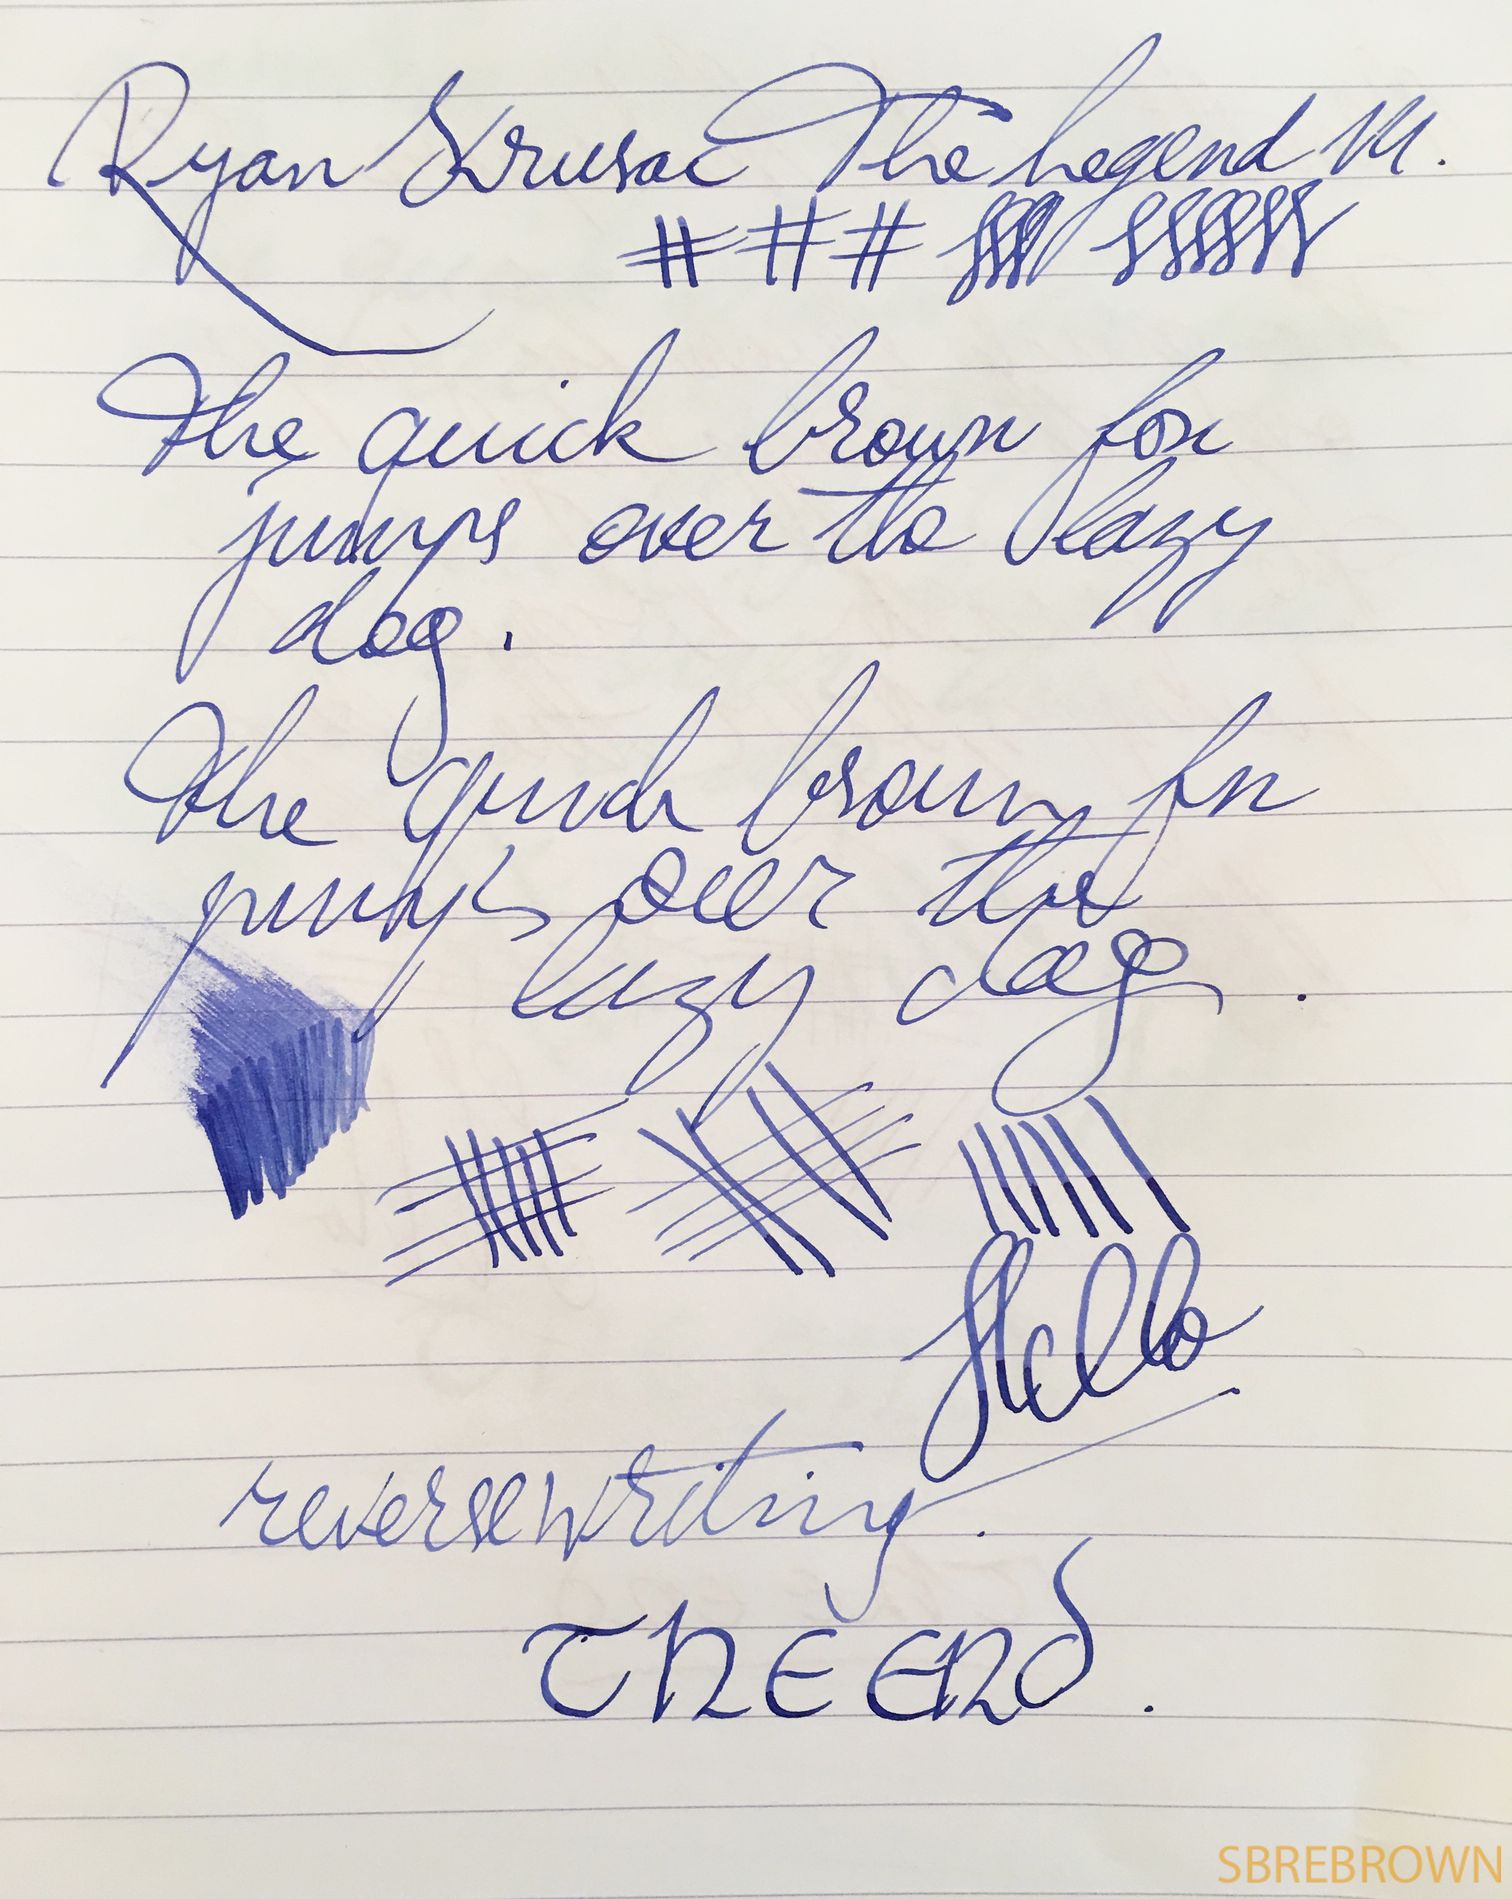 Ryan Krusac The Legend M.
The quick brown fox
jumps over the lazy
dog.
The quick brown fox
jumps over the
lazy dog.
Hello
reverse writing.
THE END.
SBREBROWN